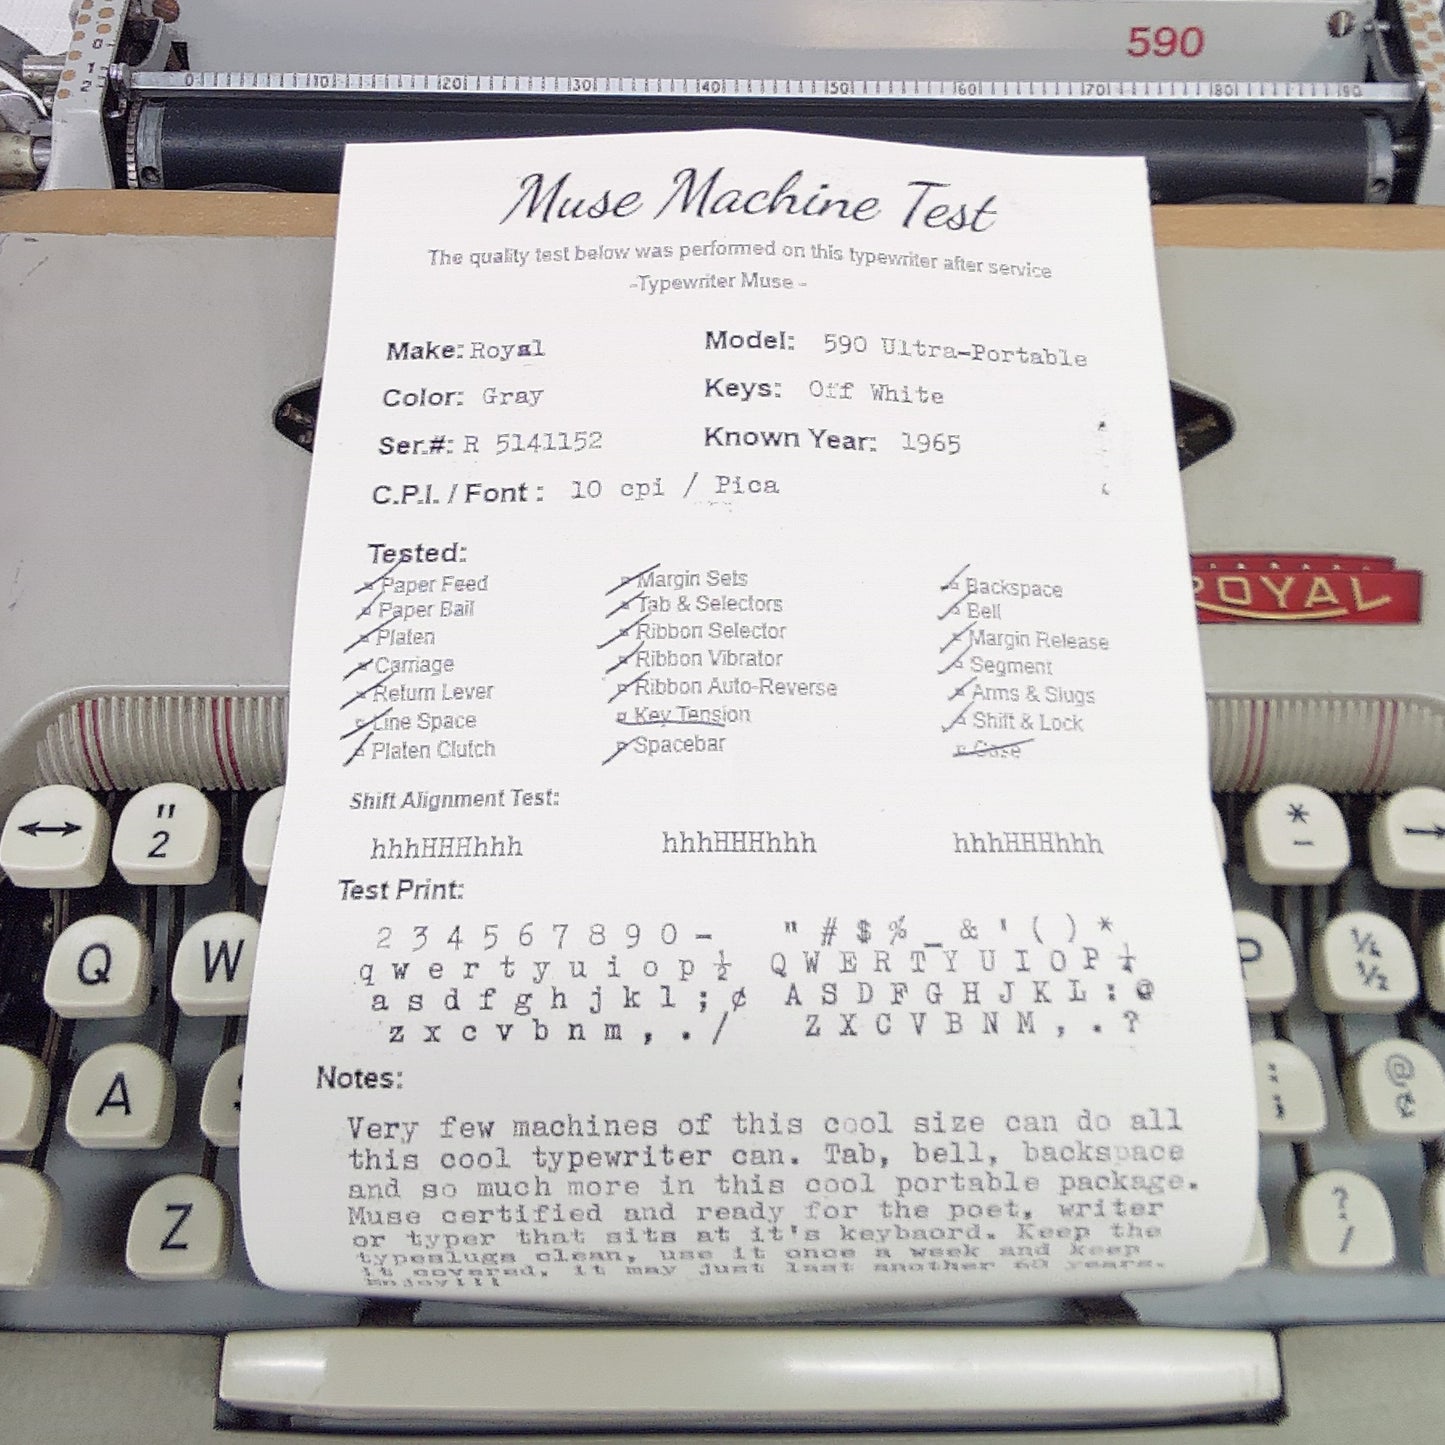 590
0 10 20 30 40 50 60 70 80 90
0
1
2
Muse Machine Test
The quality test below was performed on this typewriter after service
-Typewriter Muse -
Make: Royal Model: 590 Ultra-Portable
Color: Gray Keys: Off White
Ser.#: R 5141152 Known Year: 1965
C.P.I. / Font : 10 cpi / Pica
Tested:
Paper Feed Margin Sets Backspace
Paper Bail Tab & Selectors Bell
Platen Ribbon Selector Margin Release
Carriage Ribbon Vibrator Segment
Return Lever Ribbon Auto-Reverse Arms & Slugs
Line Space Key Tension Shift & Lock
Platen Clutch Spacebar Case
ROYAL
Shift Alignment Test:
hhhHHHhhh hhhHHHhhh hhhHHHhhh
Test Print:
2 3 4 5 6 7 8 9 0 - " # $ % _ & ' ( ) *
q w e r t y u i o p ½ Q W E R T Y U I O P ¼
a s d f g h j k l ; ¢ A S D F G H J K L : @
z x c v b n m , . / Z X C V B N M , . ?
Notes:
Very few machines of this cool size can do all
this cool typewriter can. Tab, bell, backspace
and so much more in this cool portable package.
Muse certified and ready for the poet, writer
or typer that sits at it's keybaord. Keep the
typeslugs clean, use it once a week and keep
it covered, it may just last another 60 years.
Enjoy!!!
" 2 * -
Q W P ¼ ½
A : ; @ ¢
Z ? /